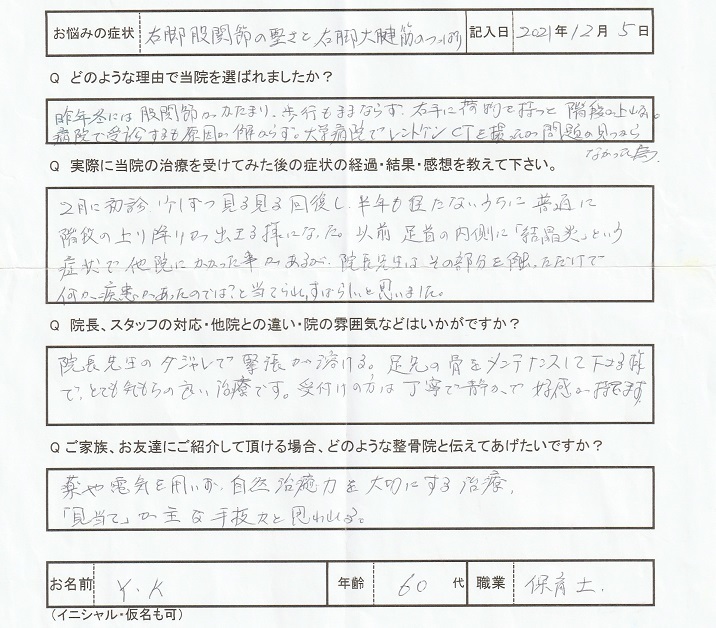 お悩みの症状 右脚股関節の堅さと右脚大腱筋のつっぱり 記入日 2021年12月5日
Q どのような理由で当院を選ばれましたか？
昨年冬には股関節がかたまり、歩行もままならず、右手に荷物を持つと階段の上れない。
病院で受診するも原因が解からず。大学病院でレントゲンCTを撮ったが問題が見つから
なかった為
Q 実際に当院の治療を受けてみた後の症状の経過・結果・感想を教えて下さい。
2月に初診 少しずつ見る見る回復し、半年も経たないうちに普通に
階段の上り降りが出来る様になった。以前足首の内側に「結晶炎」という
症状で他院にかかった事があるが、院長先生はその部分を触っただけで
何か疾患があったのでは？と当てられ、すばらしいと思いました。
Q 院長、スタッフの対応・他院との違い・院の雰囲気などはいかがですか？
院長先生のダジャレで緊張が溶ける。足先の骨をメンテナンスして下さる
で、とても気もちの良い治療です。受付けの方は丁寧で静かで好感が持てます
Q ご家族、お友達にご紹介して頂ける場合、どのような整骨院と伝えてあげたいですか？
薬や電気を用いず、自然治癒力を大切にする治療、
「見当て」が主な手技だと思われる。
お名前 Y.K 年齢 60代 職業 保育士.
（イニシャル・仮名も可）